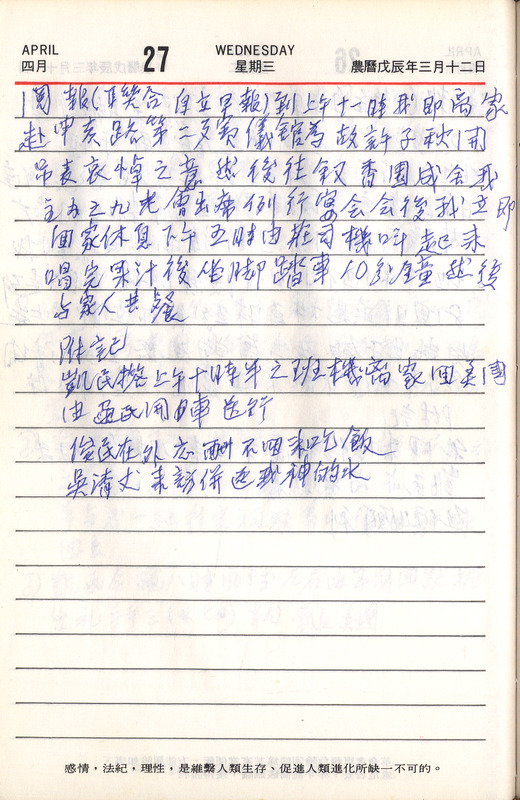 APRIL 27 WEDNESDAY
四月 星期三 農曆戊辰年三月十二日
閱報(聯合 自立早報)到上午十一時我即离家
赴辛亥路第二殯儀館為故許子秋開
吊表哀悼之意然後往釵香園咸余我
主九九老會出席例行宴会会後我立即
回家休息下午五時由莊司機叫起來
喝完果汁後坐脚踏車10分鐘然後
与家人共餐
附記
凱民搭上午十時半之班機离家回美国
由 民開車送行
俊民在外应酬不回來吃飯
吳清丈來訪併送我神的水
感情,法紀,理性,是維繫人類生存、促進人類進化所缺一不可的。